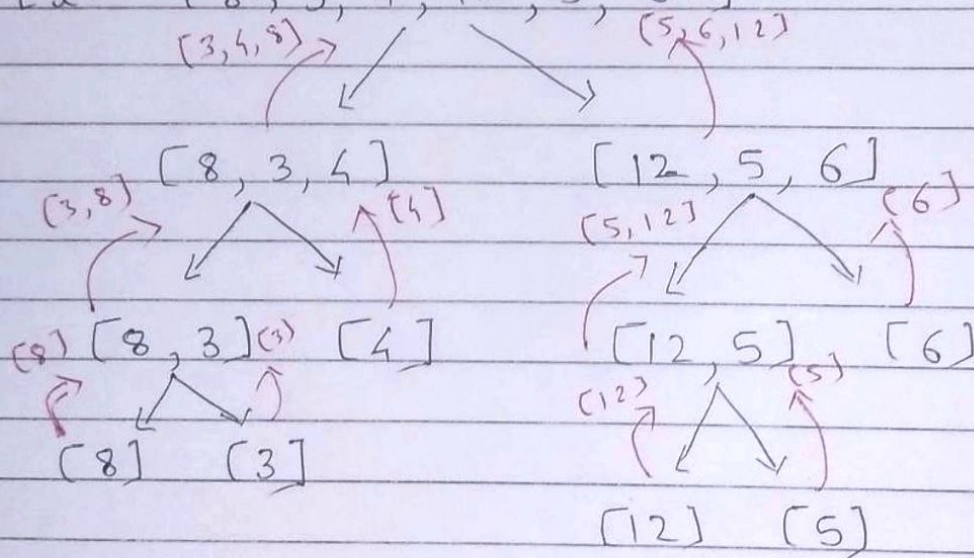 [3,4,8] [5,6,12]
[8, 3, 4] [12, 5, 6]
[3,8] [4] [5,12] [6]
[8] [8, 3] [3] [4] [12, 5] [6]
[12] [5]
[8] [3]
[12] [5]